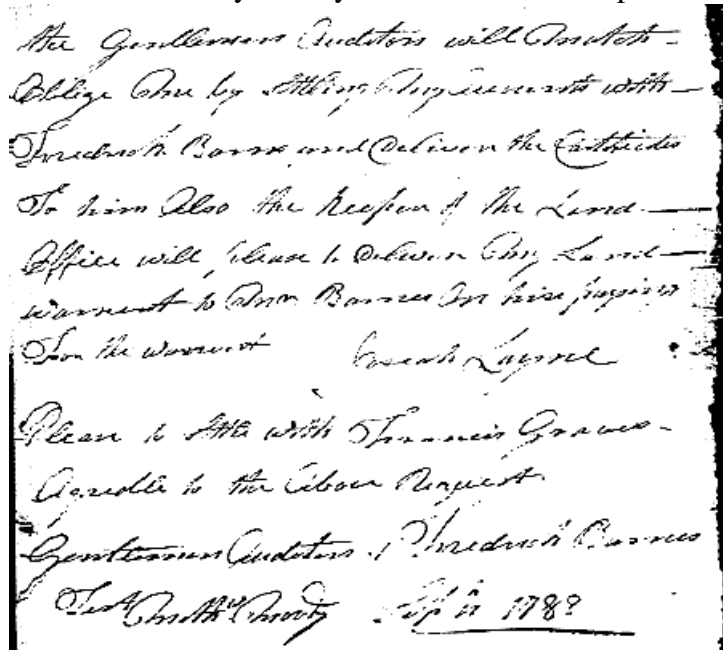 the Gentlemen Auditors will Mutch
Oblige Me by Settling My accounts with
Fredrick Barns and Deliver the Certificates
To him Also the keeper of the Land
Office will please to Deliver My Land
warrent to Mr Barnes On his paying
For the warrent Layne
Pleas to Settle with Francis Graves
Agreable to the Above Request
Gentlemen Auditors Fredrick Barnes
Test Moody 178